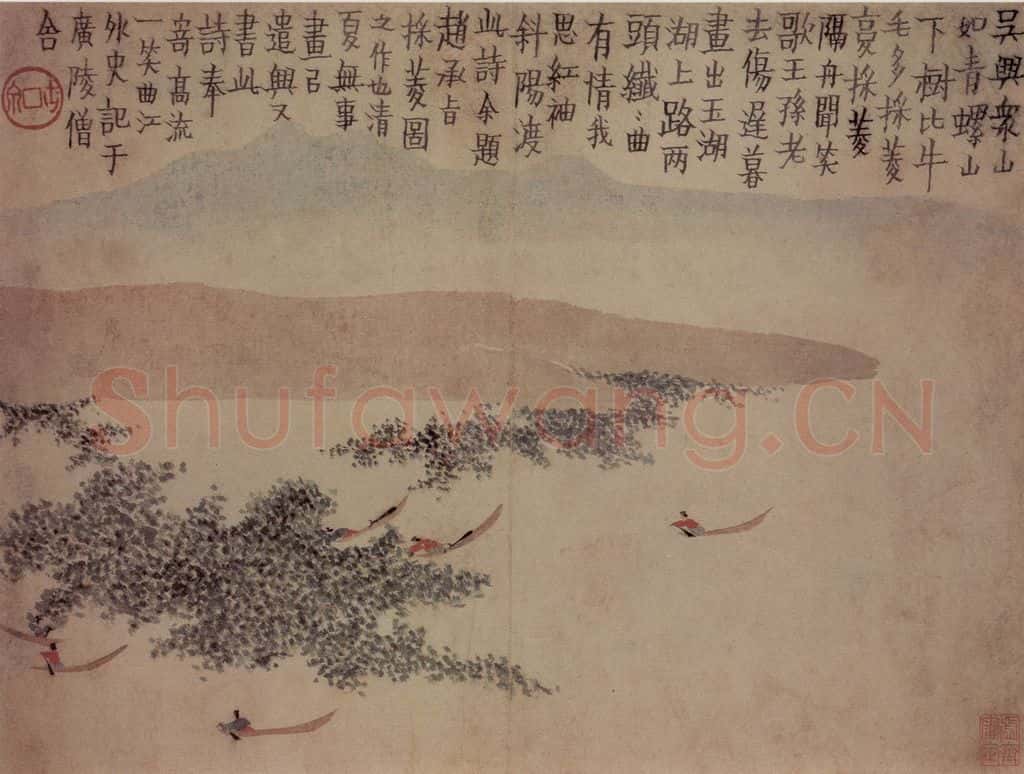 吳興衆山
如青螺山
下樹比牛
毛多採菱
复採菱
隔舟聞笑
歌王孫老
去傷遲暮
畫出玉湖
湖上路两
頭纖〻曲
有情我
思紅袖
斜陽渡
此詩余題
趙承旨
採菱圖
之作也清
夏無事
畫已
遣興又
書此
詩奉
寄高流
一笑曲江
外史記于
廣陵僧
舍
Shufawang.CN